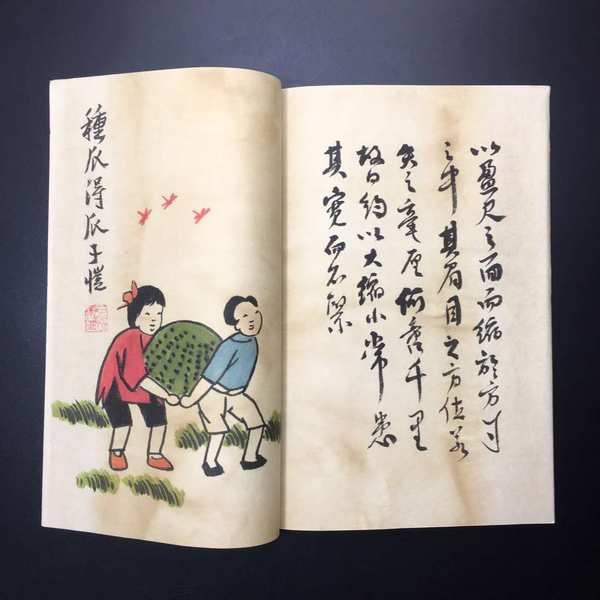 以盈尺之面而縮於方寸
之中其眉目之方位若
失之毫厘何啻千里
故曰約以大縮小常患
其寬而不緊
種瓜得瓜子愷